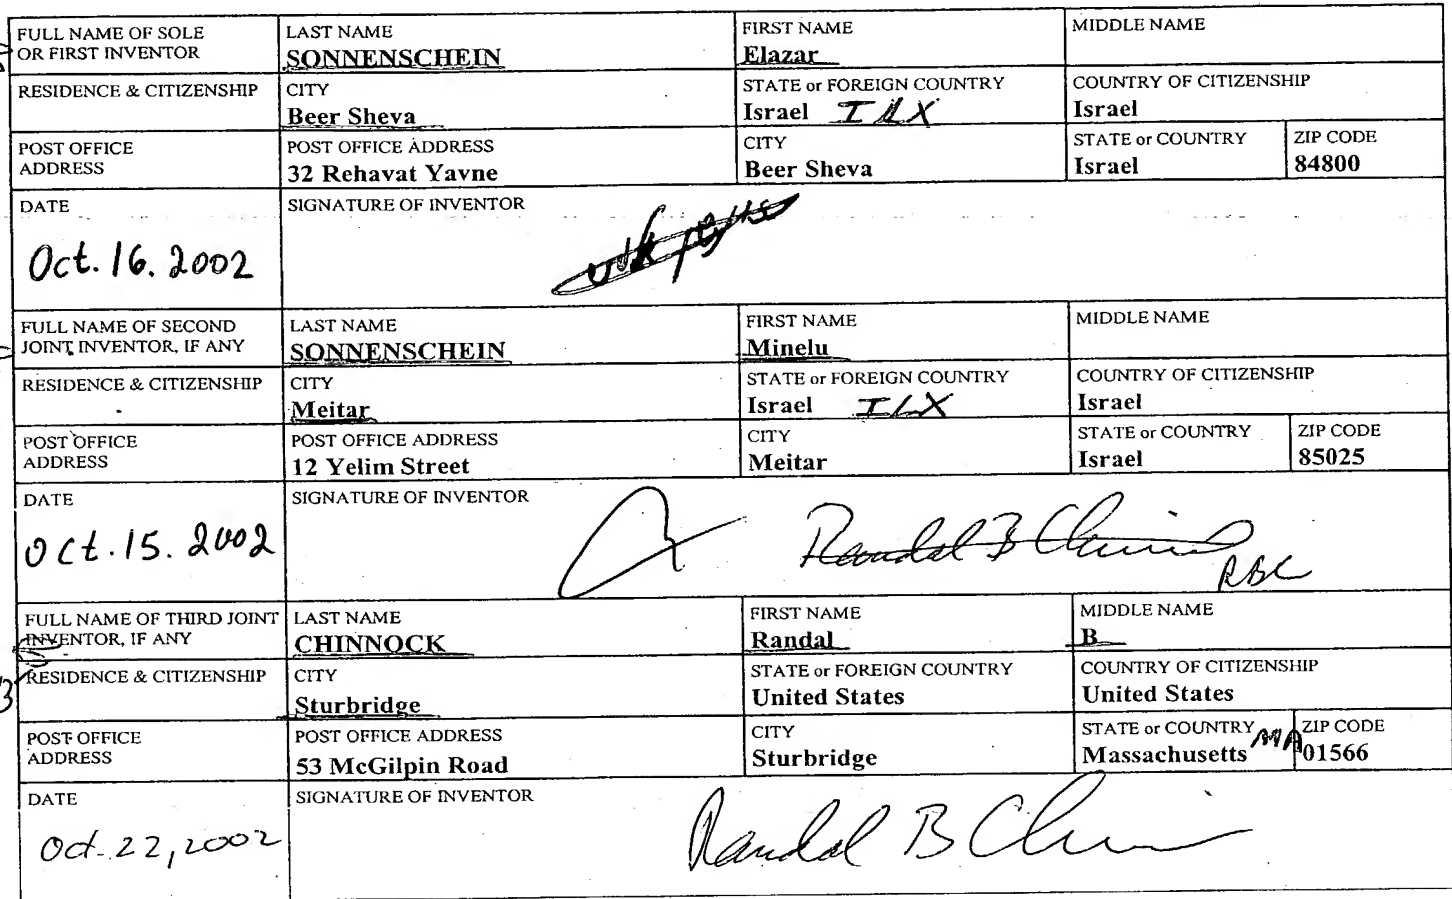 FULL NAME OF SOLE OR FIRST INVENTOR LAST NAME SONNENSCHEIN FIRST NAME Elazar MIDDLE NAME
RESIDENCE & CITIZENSHIP CITY Beer Sheva STATE or FOREIGN COUNTRY Israel ILX COUNTRY OF CITIZENSHIP Israel
POST OFFICE ADDRESS POST OFFICE ADDRESS 32 Rehavat Yavne CITY Beer Sheva STATE or COUNTRY Israel ZIP CODE 84800
DATE Oct. 16. 2002 SIGNATURE OF INVENTOR
FULL NAME OF SECOND JOINT INVENTOR, IF ANY LAST NAME SONNENSCHEIN FIRST NAME Minelu MIDDLE NAME
RESIDENCE & CITIZENSHIP CITY Meitar STATE or FOREIGN COUNTRY Israel ILX COUNTRY OF CITIZENSHIP Israel
POST OFFICE ADDRESS POST OFFICE ADDRESS 12 Yelim Street CITY Meitar STATE or COUNTRY Israel ZIP CODE 85025
DATE Oct. 15. 2002 SIGNATURE OF INVENTOR Randal B RBC
FULL NAME OF THIRD JOINT INVENTOR, IF ANY LAST NAME CHINNOCK FIRST NAME Randal MIDDLE NAME B
RESIDENCE & CITIZENSHIP CITY Sturbridge STATE or FOREIGN COUNTRY United States COUNTRY OF CITIZENSHIP United States
POST OFFICE ADDRESS POST OFFICE ADDRESS 53 McGilpin Road CITY Sturbridge STATE or COUNTRY Massachusetts MA ZIP CODE 01566
DATE Oct. 22, 2002 SIGNATURE OF INVENTOR Randal B